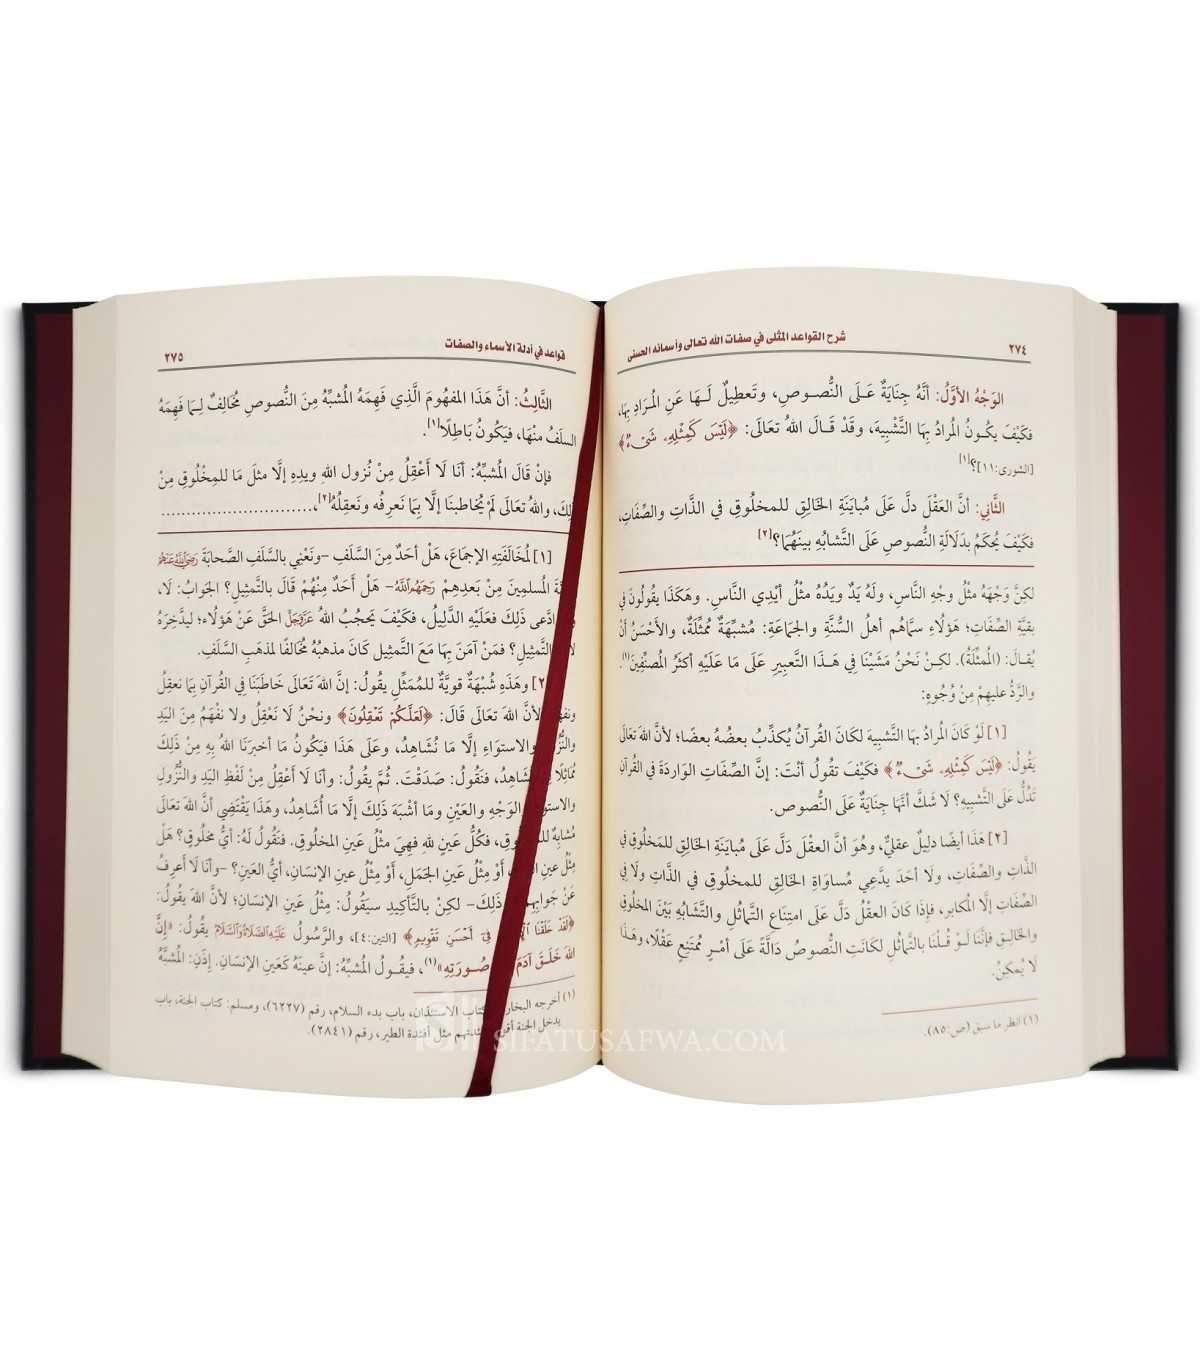 ٢٧٤
شرح القواعد المثلى في صفات الله تعالى وأسمائه الحسنى
الوَجْهُ الأوَّلُ: أنَّهُ جِنَايَةٌ عَـلَى النُّصـوصِ، وتَعطِيلٌ لَـهَا عَنِ المُرَادِ بِهَا،
فكَيْفَ يكُـونُ المُرادُ بِهَا التَّشْبِيهَ، وقَدْ قَـالَ اللهُ تعَالَى: ﴿لَيْسَ كَمِثْلِهِۦ شَىْءٌ﴾
[الشورى:١١]؟[١]
الثَّانِي: أنَّ العَقْلَ دلَّ عَلَى مُبايَنَةِ الخَالِقِ للمخلُوقِ في الذَّاتِ والصِّفَاتِ،
فكَيْفَ يُحكَمُ بدَلَالَةِ النُّصوصِ عَلَى التَّشابُهِ بينَهُمَا؟[٢]
لكِنَّ وَجْهَهُ مثْلُ وجْهِ النَّاسِ، ولَهُ يَدٌ ويَدُهُ مثْلُ أيْدِي النَّاسِ. وهَكَذَا يقُولُونَ في
بقيَّةِ الصِّفَاتِ؛ هَؤُلَاءِ سمَّاهُم أهلُ السُّنَّةِ والجمَاعَةِ: مُشبِّهَةً مُمثِّلَةً، والأَحْسَنُ أنْ
يُقـالَ: (المُمثِّلَةُ). لكِـنْ نَحْنُ مَشَيْنَا فِي هَـذَا التَّعبِيرِ عَلَى مَا عَلَيْهِ أكثَرُ المُصنِّفِينَ(١).
والرَّدُّ عليهِمْ مِنْ وُجُوهٍ:
[١] لَوْ كَانَ المُرادُ بهَا التَّشبِيهَ لكَانَ القُرآنُ يُكذِّبُ بعضُهُ بعضًا؛ لأنَّ اللهَ تعَالَى
يَقُولُ: ﴿لَيْسَ كَمِثْلِهِۦ شَىْءٌ﴾ فكَيْفَ تقُولُ أنْتَ: إنَّ الصِّفَاتِ الوَاردَةَ في القُرآنِ
تَدُلُّ عَلَى التَّشبِيهِ؟ لَا شَكَّ أنَّهَا جِنَايَةٌ عَلَى النُّصوصِ.
[٢] هَذَا أيضًا دلِيلٌ عقليٌّ، وهُوَ أنَّ العقْلَ دَلَّ عَلَى مُبايَنَةِ الخَالِقِ للمَخلُوقِ فِي
الذَّاتِ والصِّفَاتِ، ولَا أحَدَ يدَّعِي مُساوَاةَ الخَالِقِ للمخلُوقِ في الذَّاتِ ولَا فِي
الصِّفَاتِ إلَّا المُكابر، فإِذَا كَانَ العقْلُ دَلَّ عَلَى امتِنَاعِ التَّماثُلِ والتَّشَابُهِ بَيْنَ المخلُوقِ
والخَالِـقِ فإنَّنَا لَـوْ قُـلْنَا بالتَّماثُلِ لكَانَتِ النُّصوصُ دَالَّةً عَلَى أمْـرٍ مُمتَنِعٍ عَقْلًا، وهَذَا
لَا يُمكنُ.
(١) انظر ما سبق (ص:٨٥).
قواعد في أدلة الأسماء والصفات
٢٧٥
الثَّالِثُ: أنَّ هَذَا المَفهُومَ الَّذِي فَهِمَهُ المُشبِّهُ مِنَ النُّصوصِ مُخَالِفٌ لِـمَا فَهِمَهُ
السلَفُ منْهَا، فيَكُونُ بَاطِلًا[١].
فإنْ قَالَ المُشبِّهُ: أنَا لَا أَعْقِلُ مِنْ نُزولِ اللهِ ويدِهِ إلَّا مثلَ مَا للمخْلُوقِ مِنْ
ذلِكَ، واللهُ تعَالَى لَمْ يُخاطبنَا إلَّا بِمَا نَعرِفُه ونَعقِلُهُ[٢]،..............................
[١] لمُخَالَفَتِهِ الإجمَاعَ، هَلْ أحَدٌ مِنَ السَّلَفِ -ونَعْنِي بالسَّلَفِ الصَّحابَةَ رَضِيَ اللَّهُ عَنْهُمْ
المُسلِمِينَ مِنْ بَعدِهِمْ رَحِمَهُمُ اللَّهُ- هَلْ أَحَدٌ مِنْهُمْ قَالَ بالتَّمثِيلِ؟ الجَوابُ: لَا،
ادَّعى ذَلِكَ فعَلَيْهِ الدَّلِيلُ، فكَيْفَ يَحجُبُ اللهُ عَزَّوَجَلَّ الحَقَّ عَنْ هَؤُلَاءِ؛ ليدَّخِرَهُ
التَّمثِيلِ؟ فمَنْ آمَنَ بِهَا مَعَ التَّمثِيلِ كَانَ مذهبُهُ مُخَالفًا لمذهَبِ السَّلَفِ.
[٢] وهَذَهِ شُبْهَةٌ قويَّةٌ للمُمَثِّلِ يقُولُ: إنَّ اللهَ تَعَالَى خَاطَبَنَا فِي القُرآنِ بِمَا نعقِلُ
لأنَّ اللهَ تعَالَى قَالَ: ﴿لَعَلَّكُمْ تَعْقِلُونَ﴾ ونحْنُ لَا نَعْقِلُ ولا نفْهَمُ مِنَ اليَدِ
والاستوَاءِ إلَّا مَا نُشَاهِدُ، وعلَى هَذَا فيَكُونُ مَا أخبَرَنَا اللهُ بِهِ مِنْ ذَلِكَ
مُمَاثِلًا نُشَاهِدُ، فنَقُولُ: صَدَقْتَ. ثُمَّ يقُولُ: وأنَا لَا أَعْقِلُ مِنْ لَفْظِ اليَدِ والنُّزُولِ
والاستوَاءِ والوَجْهِ والعَيْنِ ومَا أشْبَهَ ذَلِكَ إلَّا مَا أُشَاهِدُ، وهَذَا يَقْتَضِي أنَّ اللهَ تعَالَى
مُشابِهٌ للمخلُوقِ، فكُلُّ عَينٍ للهِ فهِيَ مثْلُ عَينِ المخلُوقِ. فنَقُولُ لَهُ: أيُّ مخلُوقٍ؟ هَلْ
مِثْلُ عينِ أَوْ مِثْلُ عَينِ الجَمَلِ، أَوْ مِثْلُ عينِ الإنسَانِ، أيُّ العَينِ؟ -وأنَا لَا أعرِفُ
عَنْ جَوابِهِمْ ذَلِكَ- لكِنْ بالتَّأكِيدِ سيَقُولُ: مِثْلُ عَينِ الإنسَانِ؛ لأنَّ اللهَ يقُولُ:
﴿لَقَدْ خَلَقْنَا فِىٓ أَحْسَنِ تَقْوِيمٍ﴾ [التين:٤]، والرَّسُولُ عَلَيْهِ الصَّلَاةُ وَالسَّلَامُ يقُولُ: «إنَّ
اللهَ خَلَـقَ آدَمَ صُـورَتِهِ»(١)، فيقُـولُ المُشبِّهُ: إنَّ عينَهُ كَعَينِ الإنسَانِ. إذَنِ: المُشبِّهُ
(١) أخرجه البخاري كتاب الاستئذان، باب بدء السلام، رقم (٦٢٢٧)، ومسلم: كتاب الجنة، باب
يدخل الجنة أقوام أفئدتهم مثل أفئدة الطير، رقم (٢٨٤١).
SIFATUSAFWA.COM